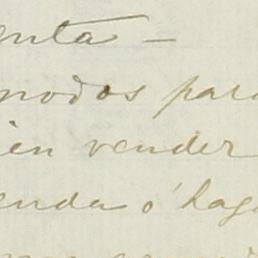 enta —
modos para
ien vender
enda ó haga